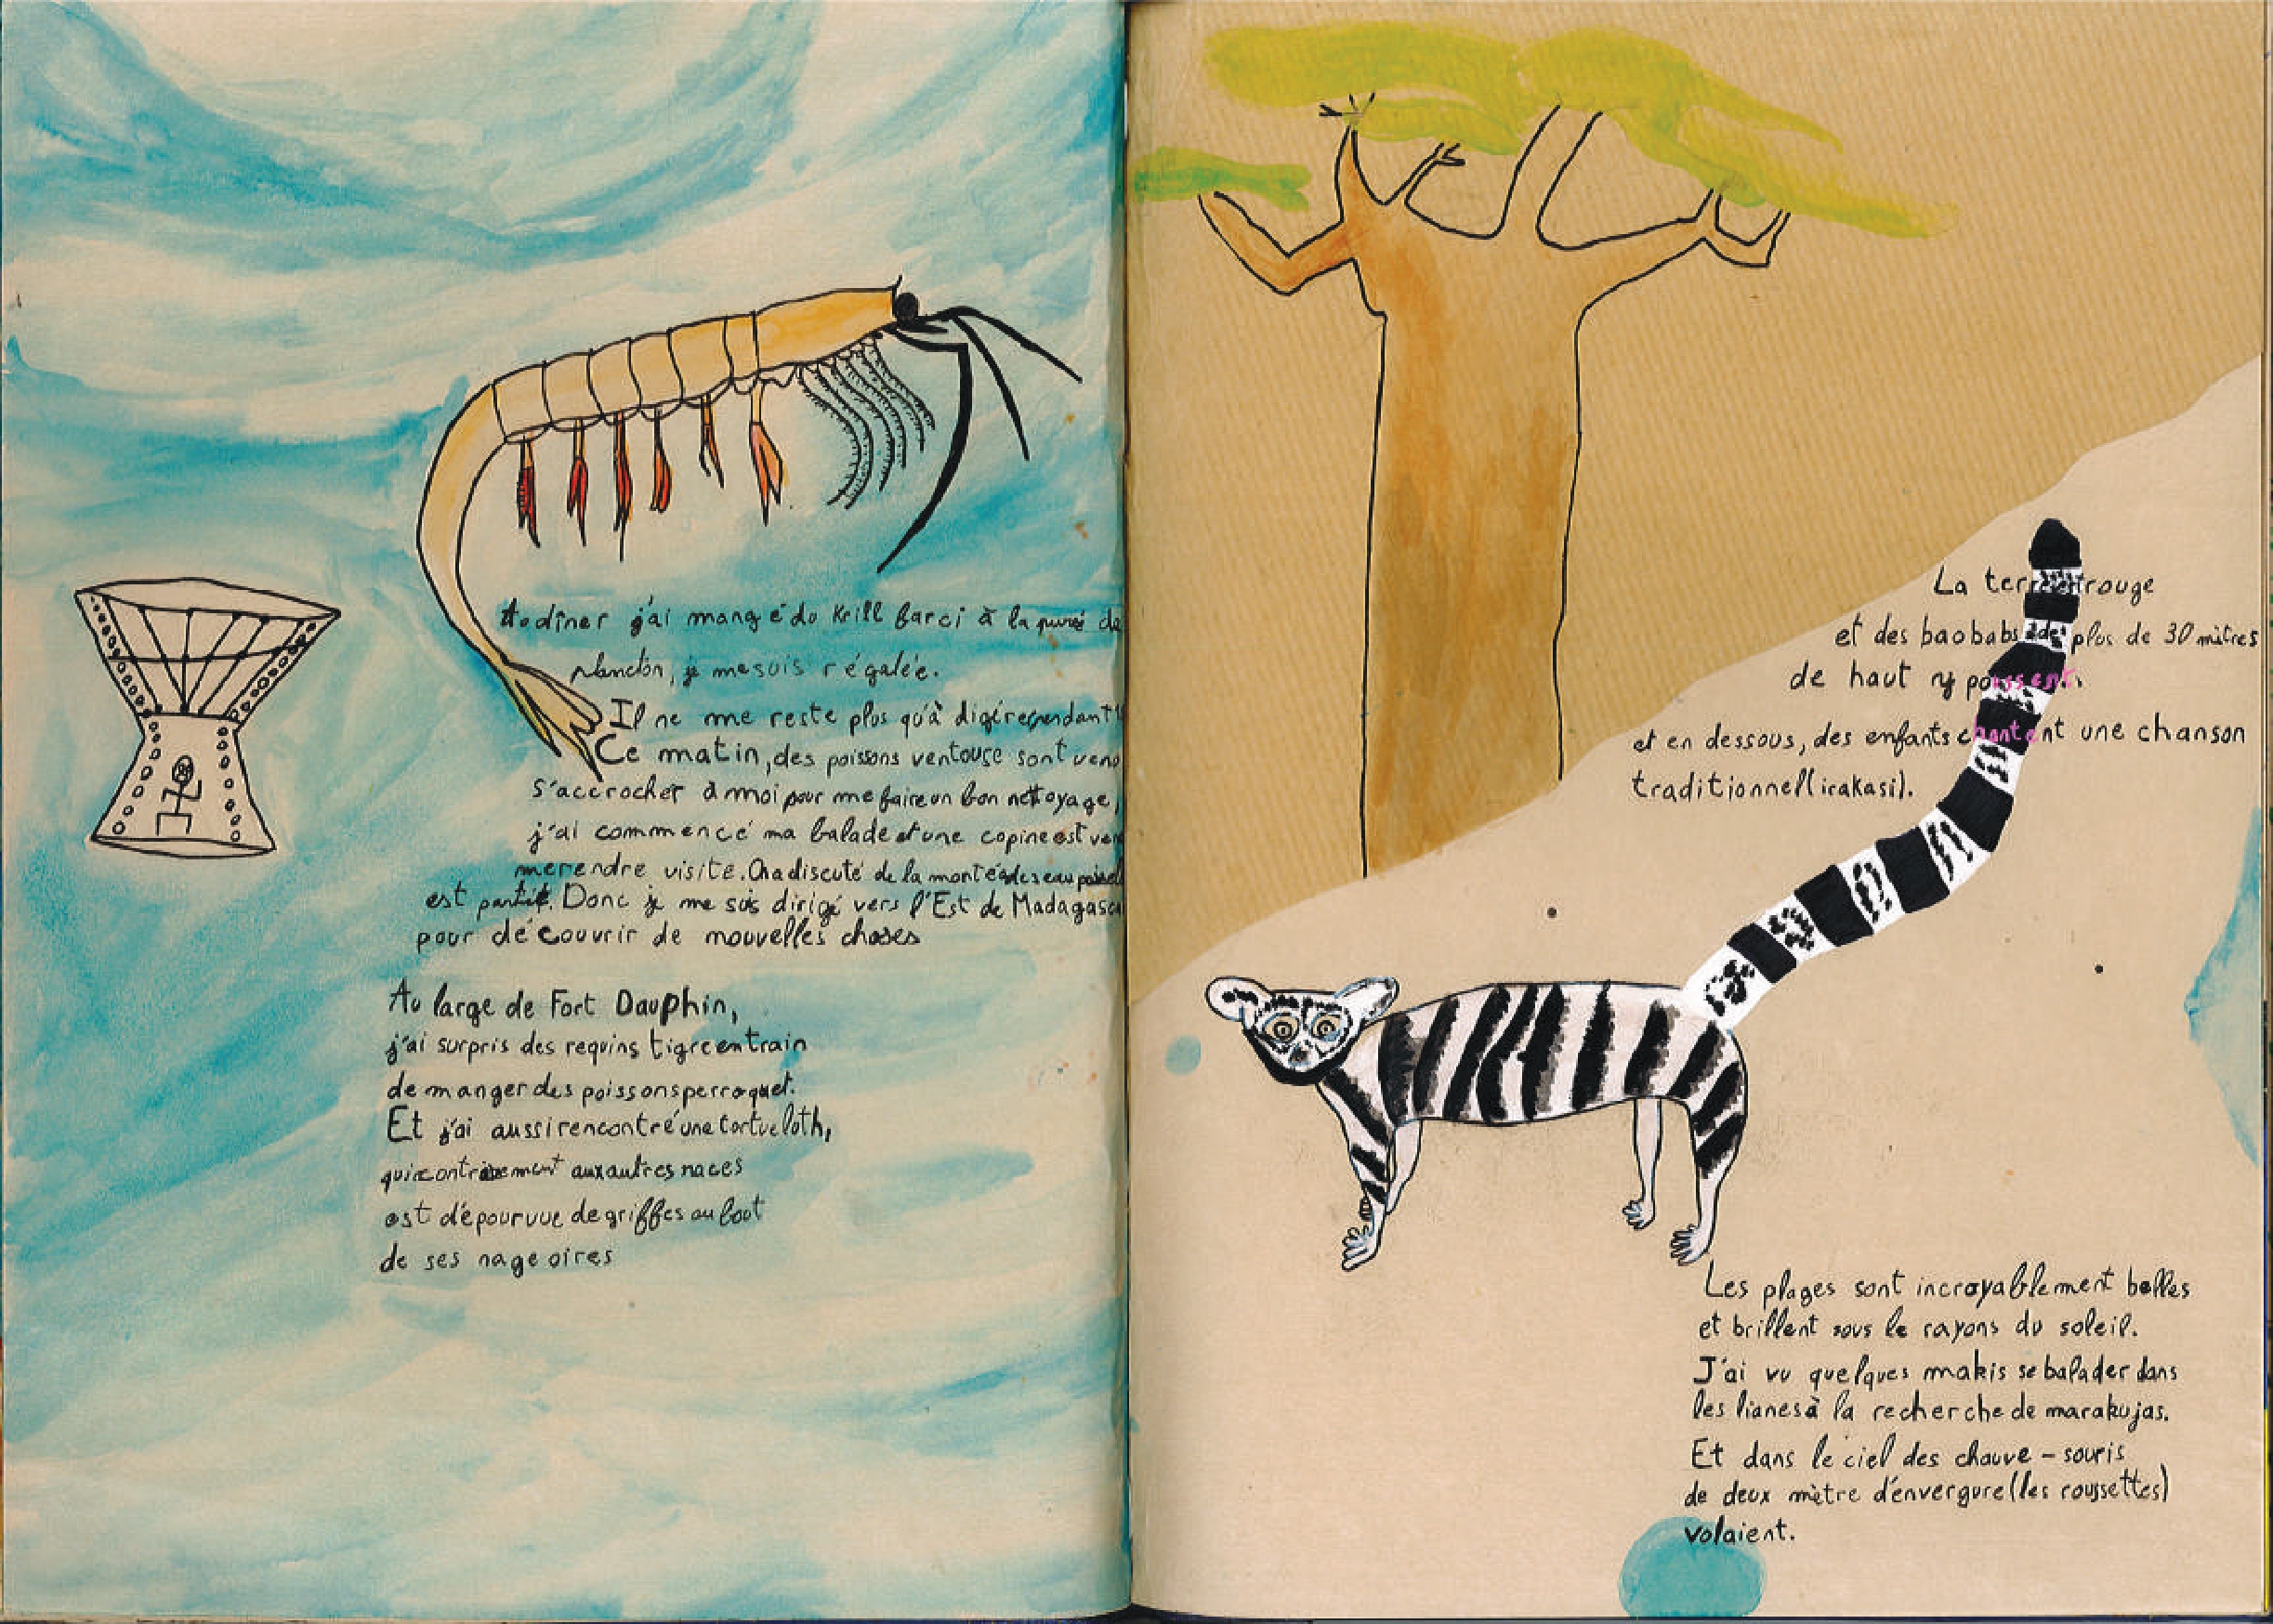 Au dîner j'ai mangé du Krill farci à la purée de
plancton, je me suis régalée.
Il ne me reste plus qu'à digérer pendant
Ce matin, des poissons ventouse sont venu
s'accrocher à moi pour me faire un bon nettoyage,
j'ai commencé ma balade et une copine est
me rendre visite. On a discuté de la montée des eau
est partie. Donc je me suis dirigé vers l'Est de Madagasca
pour découvrir de nouvelles choses
Au large de Fort Dauphin,
j'ai surpris des requins tigre en train
de manger des poissons perroquet.
Et j'ai aussi rencontré une tortue loth,
qui contrairement aux autres races
est dépourvue de griffes au bout
de ses nageoires
La terre est rouge
et des baobabs de plus de 30 mètres
de haut y poussent.
et en dessous, des enfants chantent une chanson
traditionnel (irakasi).
Les plages sont incroyablement belles
et brillent sous le rayons du soleil.
J'ai vu quelques makis se balader dans
les lianes à la recherche de marakujas.
Et dans le ciel des chauve-souris
de deux mètre d'envergure (les roussettes)
volaient.